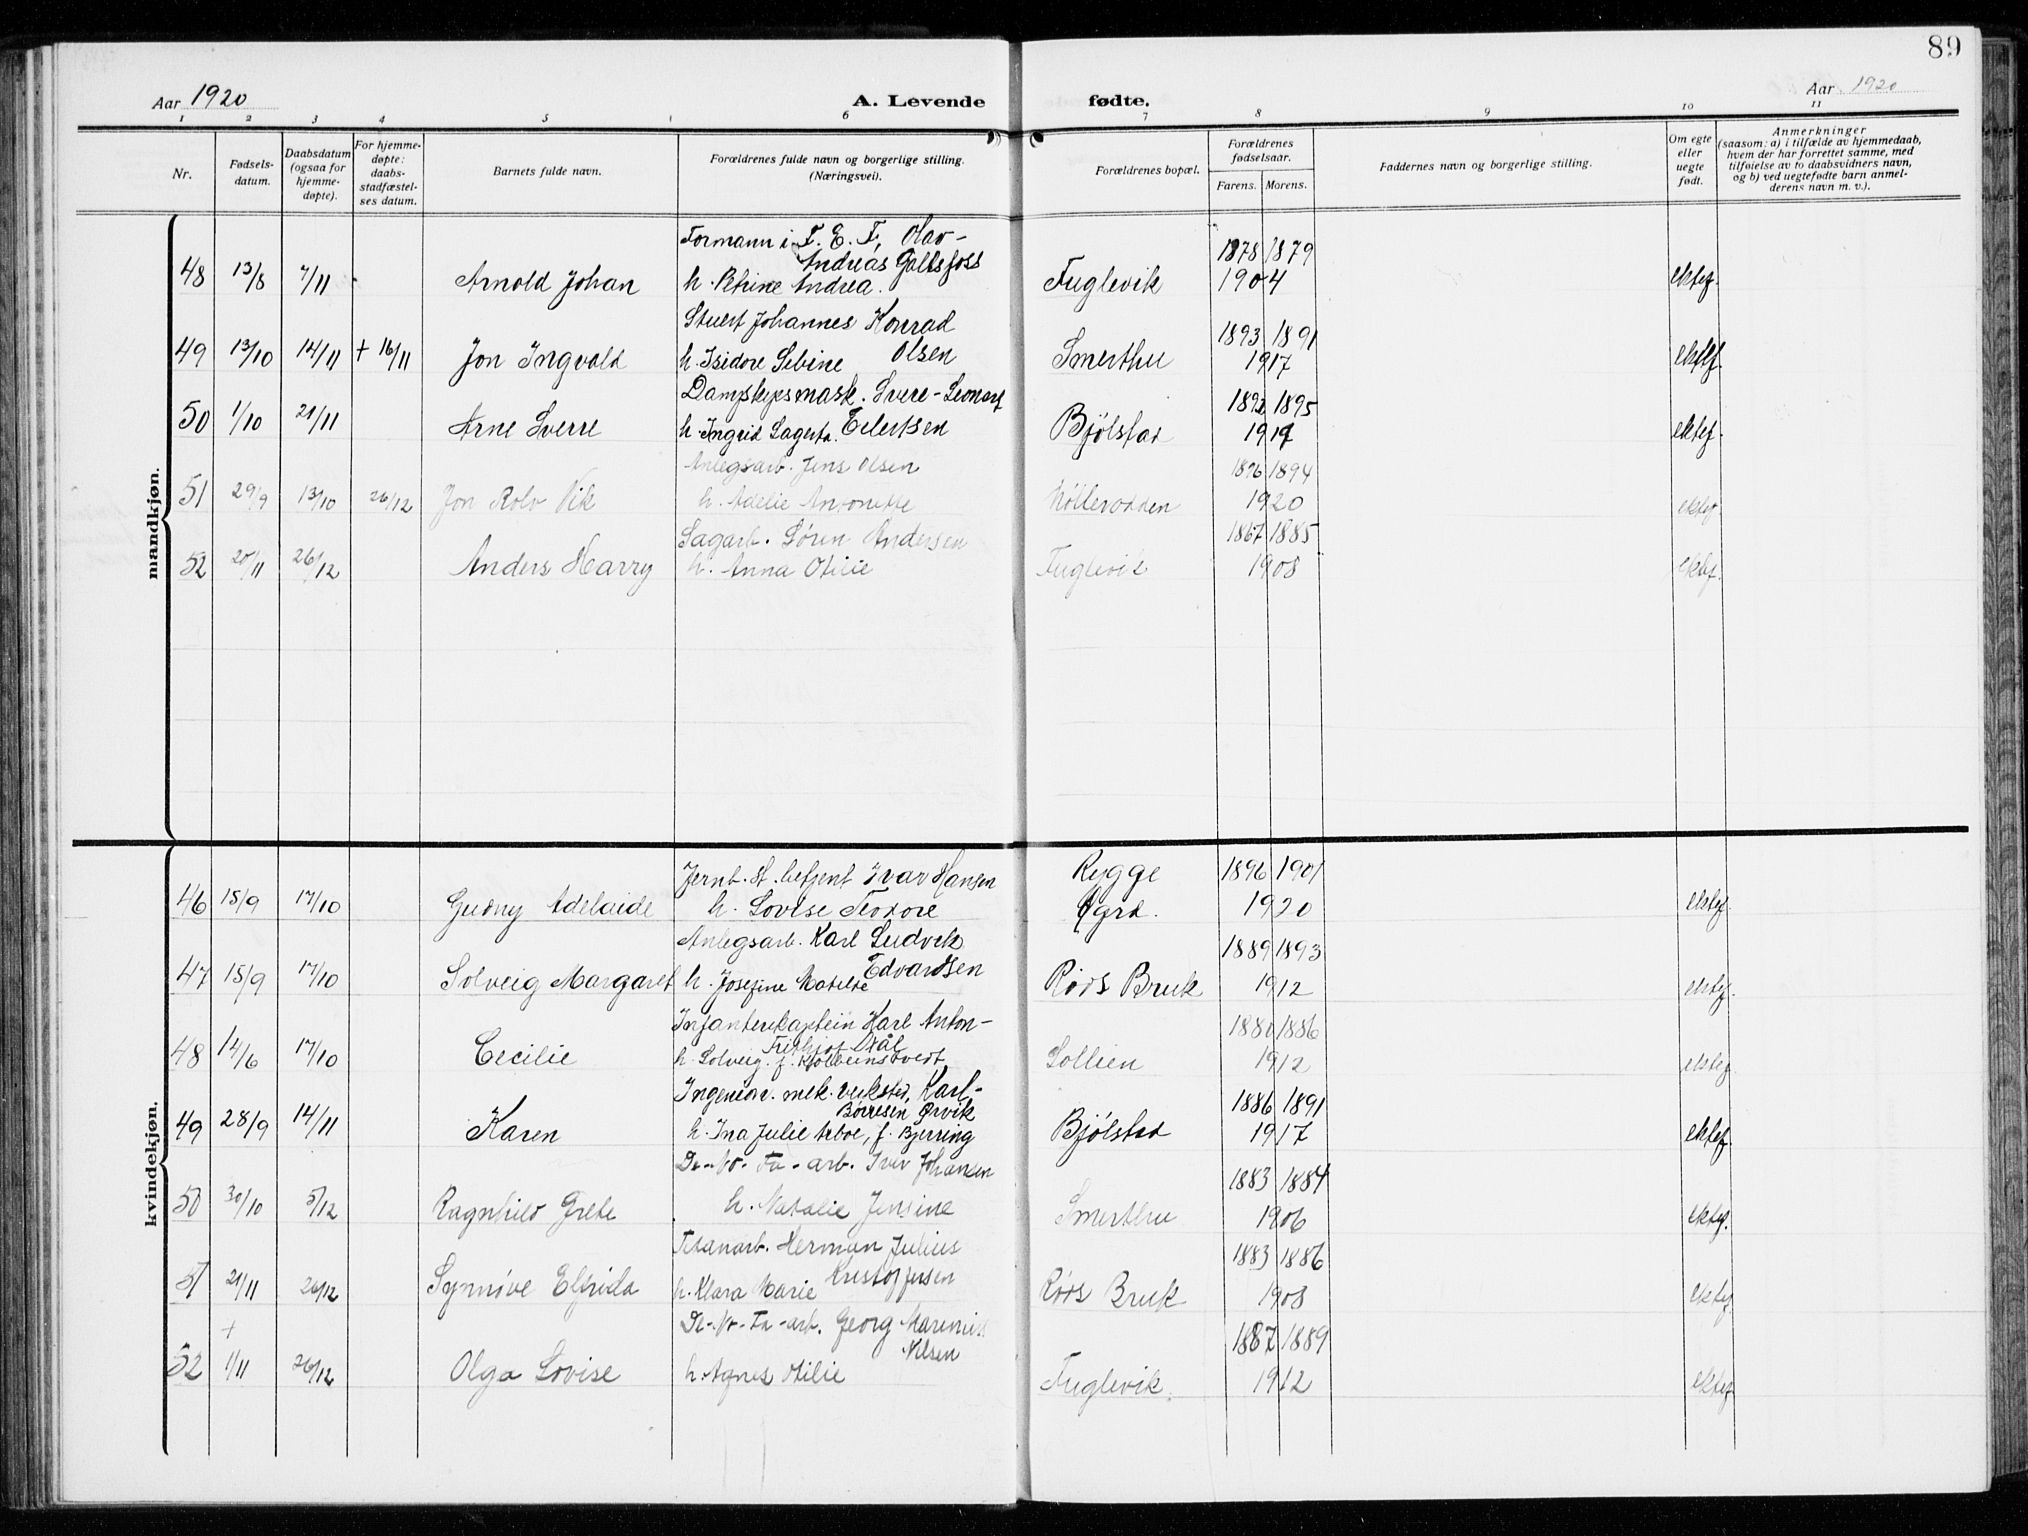 89
Aar 1920 A. Levende fødte. Aar 1920
1 2 3 4 5 6 7 8 9 10 11
Nr.
Fødsels-
datum.
Daabsdatum
(ogsaa for
hjemme-
døpte).
For hjemme-
døpte:
daabs-
stadfæstel-
ses datum.
Barnets fulde navn.
Forældrenes fulde navn og borgerlige stilling.
(Næringsvei).
Forældrenes bopæl.
Forældrenes
fødselsaar.
Farens. Morens.
Faddernes navn og borgerlige stilling.
Om egte
eller
uegte
født.
Anmerkninger
(saasom: a) i tilfælde av hjemmedaab,
hvem der har forrettet samme, med
tilføielse av to daabsvidners navn,
og b) ved uegtefødte barn anmel-
derens navn m. v.).
mandkjøn.
Formann i F. E. F, Olav- 1878 1879
Andreas Galtsfoss
48 13/8 7/11 Arnold Johan h. Petrine Andrea. Fuglevik 1904 ektef.
Stuert Johannes Konrad 1893 1891
Olsen
49 13/10 14/11 + 16/11 Jon Ingvald h. Isidore Sebine Smerthu 1917 ektef.
Dampskipsmask. Svere-Leonart 1892 1895
50 1/10 21/11 Arne Sverre h. Ingrid Lagerta. Eilertsen Bjølstad 1917 ektef.
Anlegsarb. Jens Olsen 1896 1894
51 29/9 13/10 26/12 Jon Rolv Vik h. Adelie Antonette Møllerodden 1920 ektef
Sagarb. Søren Andersen 1867 1885
52 20/11 26/12 Anders Harry h. Anna Otilie Fuglevik 1908 ektef.
kvindekjøn.
Jernb. st. betjent Ivar Hansen Rygge 1896 1901
46 15/9 17/10 Gudny Adelaide h. Lovise Teodore 1920 ektef.
Anlegsarb. Karl Ludvik 1889 1893
Edvardsen
47 15/9 17/10 Solveig Margaret h. Josefine Matilde Rørs Bruk 1912 ektef.
Infanterikaptein Karl Anton- 1886
Frithjof Dål
48 14/6 17/10 Cecilie h. Solveig. f. Kolbeinstvedt, Sollien 1912 ektef
Ingeniør. mek. verksted, Karl- 1886 1891
Børresen Ørvik
49 28/9 14/11 Karen h. Ina Julie Arboe, f. Bjerring Bjølstad 1917 ektef
De-No-Fa-arb. Iver Johansen 1883 1884
50 30/10 5/12 Ragnhild Grete h. Natalie Jensine Smerthu 1906 ektef.
Titanarb. Herman Julius 1883 1886
Kristoffersen
51 21/11 26/12 Synnøve Elfrida h. Klara Marie Rørs Bruk 1908 ektef
De-No-Fa-arb. Georg Marenius 1887 1889
+ Nilsen
52 1/11 26/12 Olga Lovise h. Agnes Otilie Fuglevik. 1912 ektef